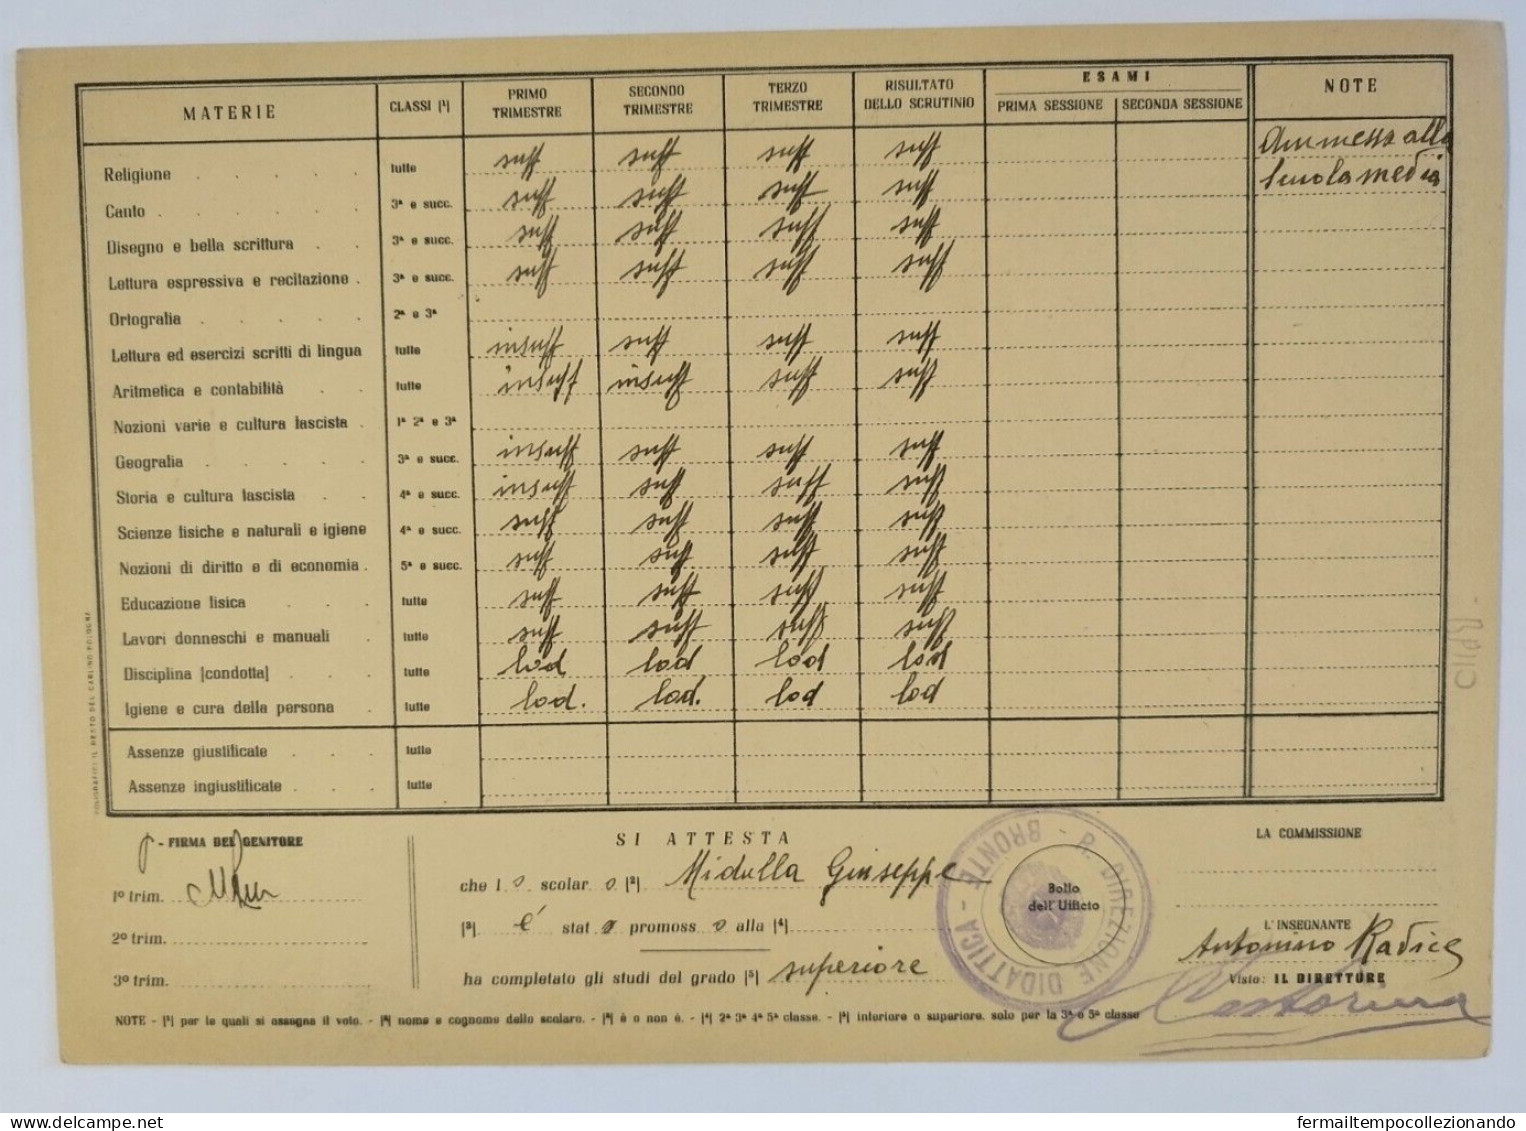 MATERIE CLASSI [¹] PRIMO TRIMESTRE SECONDO TRIMESTRE TERZO TRIMESTRE RISULTATO DELLO SCRUTINIO ESAMI PRIMA SESSIONE SECONDA SESSIONE NOTE
Religione tutte suff suff suff suff Ammesso alla
Canto 3ª e succ. suff suff suff suff Scuola media
Disegno e bella scrittura 3ª e succ. suff suff suff suff
Lettura espressiva e recitazione 3ª e succ. suff suff suff suff
Ortografia 2ª e 3ª
Lettura ed esercizi scritti di lingua tutte insuff suff suff suff
Aritmetica e contabilità tutte insuff insuff suff suff
Nozioni varie e cultura fascista 1ª 2ª e 3ª
Geografia 3ª e succ. insuff suff suff suff
Storia e cultura fascista 4ª e succ. insuff suff suff suff
Scienze fisiche e naturali e igiene 4ª e succ. suff suff suff suff
Nozioni di diritto e di economia 5ª e succ. suff suff suff suff
Educazione fisica tutte suff suff suff suff
Lavori donneschi e manuali tutte suff suff suff suff
Disciplina [condotta] tutte lod lod lod lod
Igiene e cura della persona tutte lod. lod. lod lod
Assenze giustificate tutte
Assenze ingiustificate tutte
POLIGRAFICI IL RESTO DEL CARLINO-BOLOGNA
- FIRMA DEL GENITORE
1º trim.
2º trim.
3º trim.
SI ATTESTA
che l o scolar o [²] Midulla Giuseppe
[³] è stat o promoss o alla [⁴]
ha completato gli studi del grado [⁵] superiore
Bollo
dell'Ufficio
R. DIREZIONE DIDATTICA - BRONTE -
LA COMMISSIONE
L'INSEGNANTE
Antonino Radice
Visto: IL DIRETTORE
NOTE - [¹] per le quali si assegna il voto. - [²] nome e cognome dello scolaro. - [³] è o non è. - [⁴] 2ª 3ª 4ª 5ª classe. - [⁵] inferiore o superiore, solo per la 3ª e 5ª classe
fermailtempocollezionando